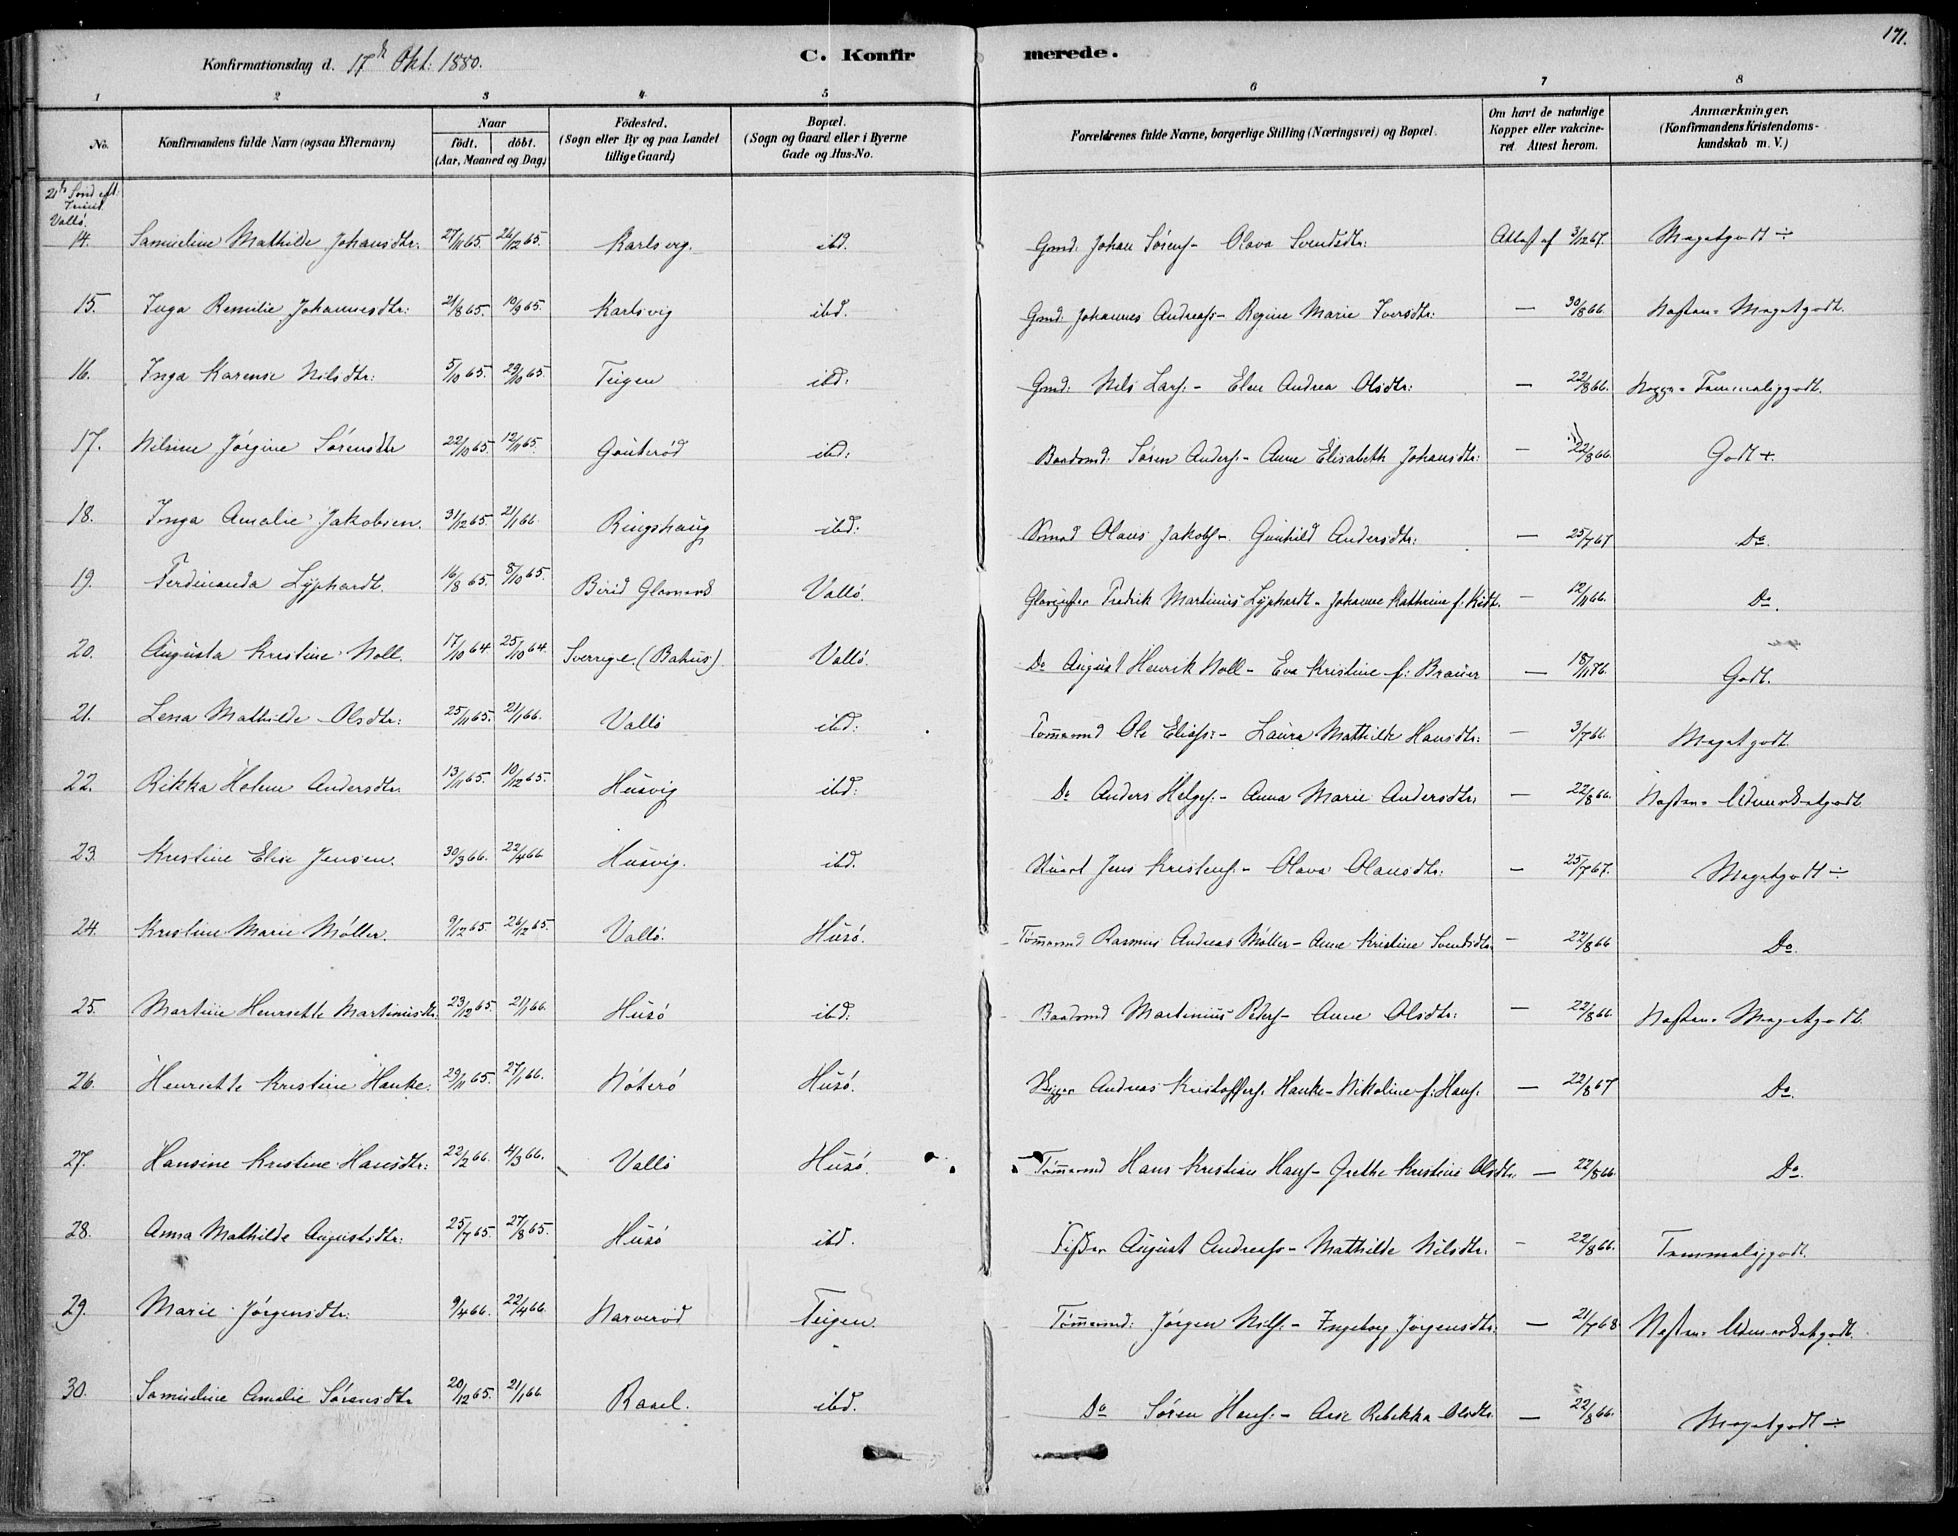 171.
Konfirmationsdag d. 17de Okt. 1880.
C. Konfirmerede.
1 2 3 4 5 6 7 8
No. | Konfirmandens fulde Navn (ogsaa Efternavn) | Naar födt. döbt. (Aar, Maaned og Dag) | Födested. (Sogn eller By og paa Landet tillige Gaard) | Bopæl. (Sogn og Gaard eller i Byerne Gade og Hus-No.) | Forældrenes fulde Navne, borgerlige Stilling (Næringsvei) og Bopæl. | Om havt de naturlige Kopper eller vakcineret Attest herom. | Anmærkninger. (Konfirmandens Kristendomskundskab m. V.)
21de Sönd. eft. Trinit.
Vallö.
14. Samueline Mathilde Johansdtr: 27/11 65. 26/12 65. Karlsvig. ibd. Gmd: Johan Sörens- Olava Svendsdtr: Attest af 3/12 67. Megetgodt ÷
15. Inga Remilie Johannesdtr: 21/8 65. 10/9 65. Karlsvig ibd. Gmd: Johannes Andreass- Regine Marie Iversdtr: — 30/8 66. Næsten Megetgodt.
16. Inga Karense Nilsdtr: 5/10 65. 29/10 65. Teigen ibd: Gmd: Nils Lars:- Elen Andrea Olsdtr: — 22/8 66. Temmeliggodt.
17. Nilsine Jörgine Sörensdtr 22/10 65. 12/11 65. Gauteröd ibd: Baadsmd: Sören Anders- Anne Elisabeth Johansdtr: — 22/8 66. Godt +.
18. Inga Amalie Jakobsen. 31/12 65. 21/1 66. Ringshaug ibd: Olaus Jakobs- Gunhild Andersdtr: — 25/7 67 Do.
19. Ferdinanda Lyphardt. 16/8 65. 8/10 65. Birid Glasværk Vallö. Fredrik Martinius Lyphardt- Johanne Kathrine f: — 12/11 66. Do.
20. Augusta Kristine Noll. 17/10 64. 25/10 64. Sverrige (Bahus) Vallö. Do August Henrik Noll- Eva Kristine f: Brauer — 18/11 76. Godt.
21. Lena Mathilde Olsdtr: 25/11 65. 21/1 66. Vallö ibd: Tömmermd Ole Elias:- Laura Mathilde Hansdtr: — 3/7 66. Megetgodt.
22. Rikka Helene Andersdtr. 13/11 65. 10/12 65. Husvig ibd: Do Anders Helges:- Anna Marie Andersdtr: — 22/8 66. Næsten Udmærketgodt.
23. Kristine Elise Jensen. 30/3 66. 22/4 66. Husvig. ibd. Jens Kristens- Olava Olausdtr: — 25/7 67. Megetgodt ÷
24. Kristine Marie Möller. 9/12 65. 26/12 65. Vallö. Husö. Tömmermd Rasmus Andreas Möller- Anne Kristine Svendsdtr — 22/8 66 Do.
25. Martine Henriette Martiniusdtr. 23/12 65. 21/1 66. Husö ibd: Baadsmd Martinius Peters- Anne Olsdtr: — 22/8 66. Næsten Megetgodt.
26. Henriette Kristine Hanke. 29/11 65. 27/1 66. Nöterö Husö. Andreas Kristoffers. Hanke- Nikoline f: Hans. — 22/8 67 Do.
27. Hansine Kristine Hansdtr: 22/2 66. 4/3 66. Vallö Husö. Tömmermd Hans Kristian Hans- Grethe Kristine Olsdtr. — 22/8 66. Do.
28. Anna Mathilde Augustsdtr: 25/7 65. 27/8 65. Husö ibd. Fisker August Andreass- Mathilde Nilsdtr: — 22/8 66. Temmeliggodt.
29. Marie Jörgensdtr. 9/4 66. 22/4 66. Narveröd Teigen. Tömmermd: Jörgen Nils:- Ingeborg Jörgensdtr: — 21/7 68 Næsten Udmærketgodt.
30. Samueline Amalie Sörensdtr 20/12 65. 21/1 66 Raael. ibd. Do Sören Hans:- Anne Rebekka Olsdtr. — 22/8 66. Megetgodt ÷